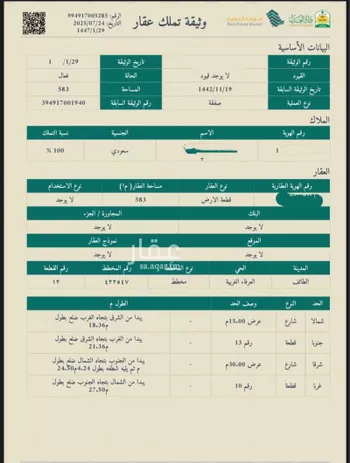 وثيقة تملك عقار
الرقم: 994917005283
التاريخ: 2025/07/24
1447/1/29
البورصة العقارية
Real Estate Market
البيانات الأساسية
رقم الوثيقة
تاريخ الوثيقة 1/29/ 1
القيود لا يوجد قيود الحالة فعال
تاريخ الوثيقة السابقة 1442/11/19 المساحة 583
نوع العملية صفقة رقم الوثيقة السابقة 394917001940
الملاك
رقم الهوية الاسم الجنسية نسبة التملك
1 سعودي 100 %
العقار
رقم الهوية العقارية نوع العقار مساحة العقار( م²) نوع الاستخدام
قطعة الارض 583 لا يوجد
البنك المجاورة / الجزء
لا يوجد لا يوجد
الموقع نموذج العقار
لا يوجد لا يوجد
عقار
sa.aqar.fm
المدينة الحي نوع المخطط رقم المخطط رقم القطعة
الطائف العرفاء الغربية مخطط ٤٣٣٥٤٧ ١٢
الحد النوع وصف الحد الطول م
شمالا شارع عرض 15.00م - يبدا من الشرق بتجاه الغرب ضلع بطول
18.36م
جنوبا قطعة رقم 13 - يبدا من الغرب بتجاه الشرق ضلع بطول
21.36م
شرقا شارع عرض 30.00م - يبدا من الجنوب بتجاه الشمال ضلع بطول
24.50م ثم يليه شطفه بطول 4.24م
غربا قطعة رقم 10 - يبدا من الشمال بتجاه الجنوب ضلع بطول
27.50م